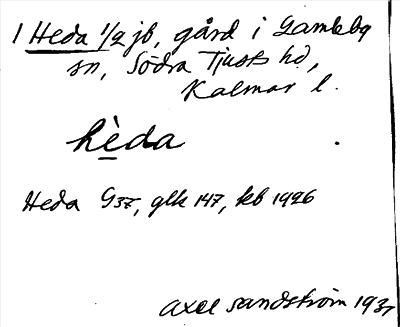 1 Heda 1/2 jb, gård i Gamleby
sn, Södra Tjusts hd,
Kalmar l.
hèda
Heda G37, glk 147, kb 1926
Axel Sandström 1937